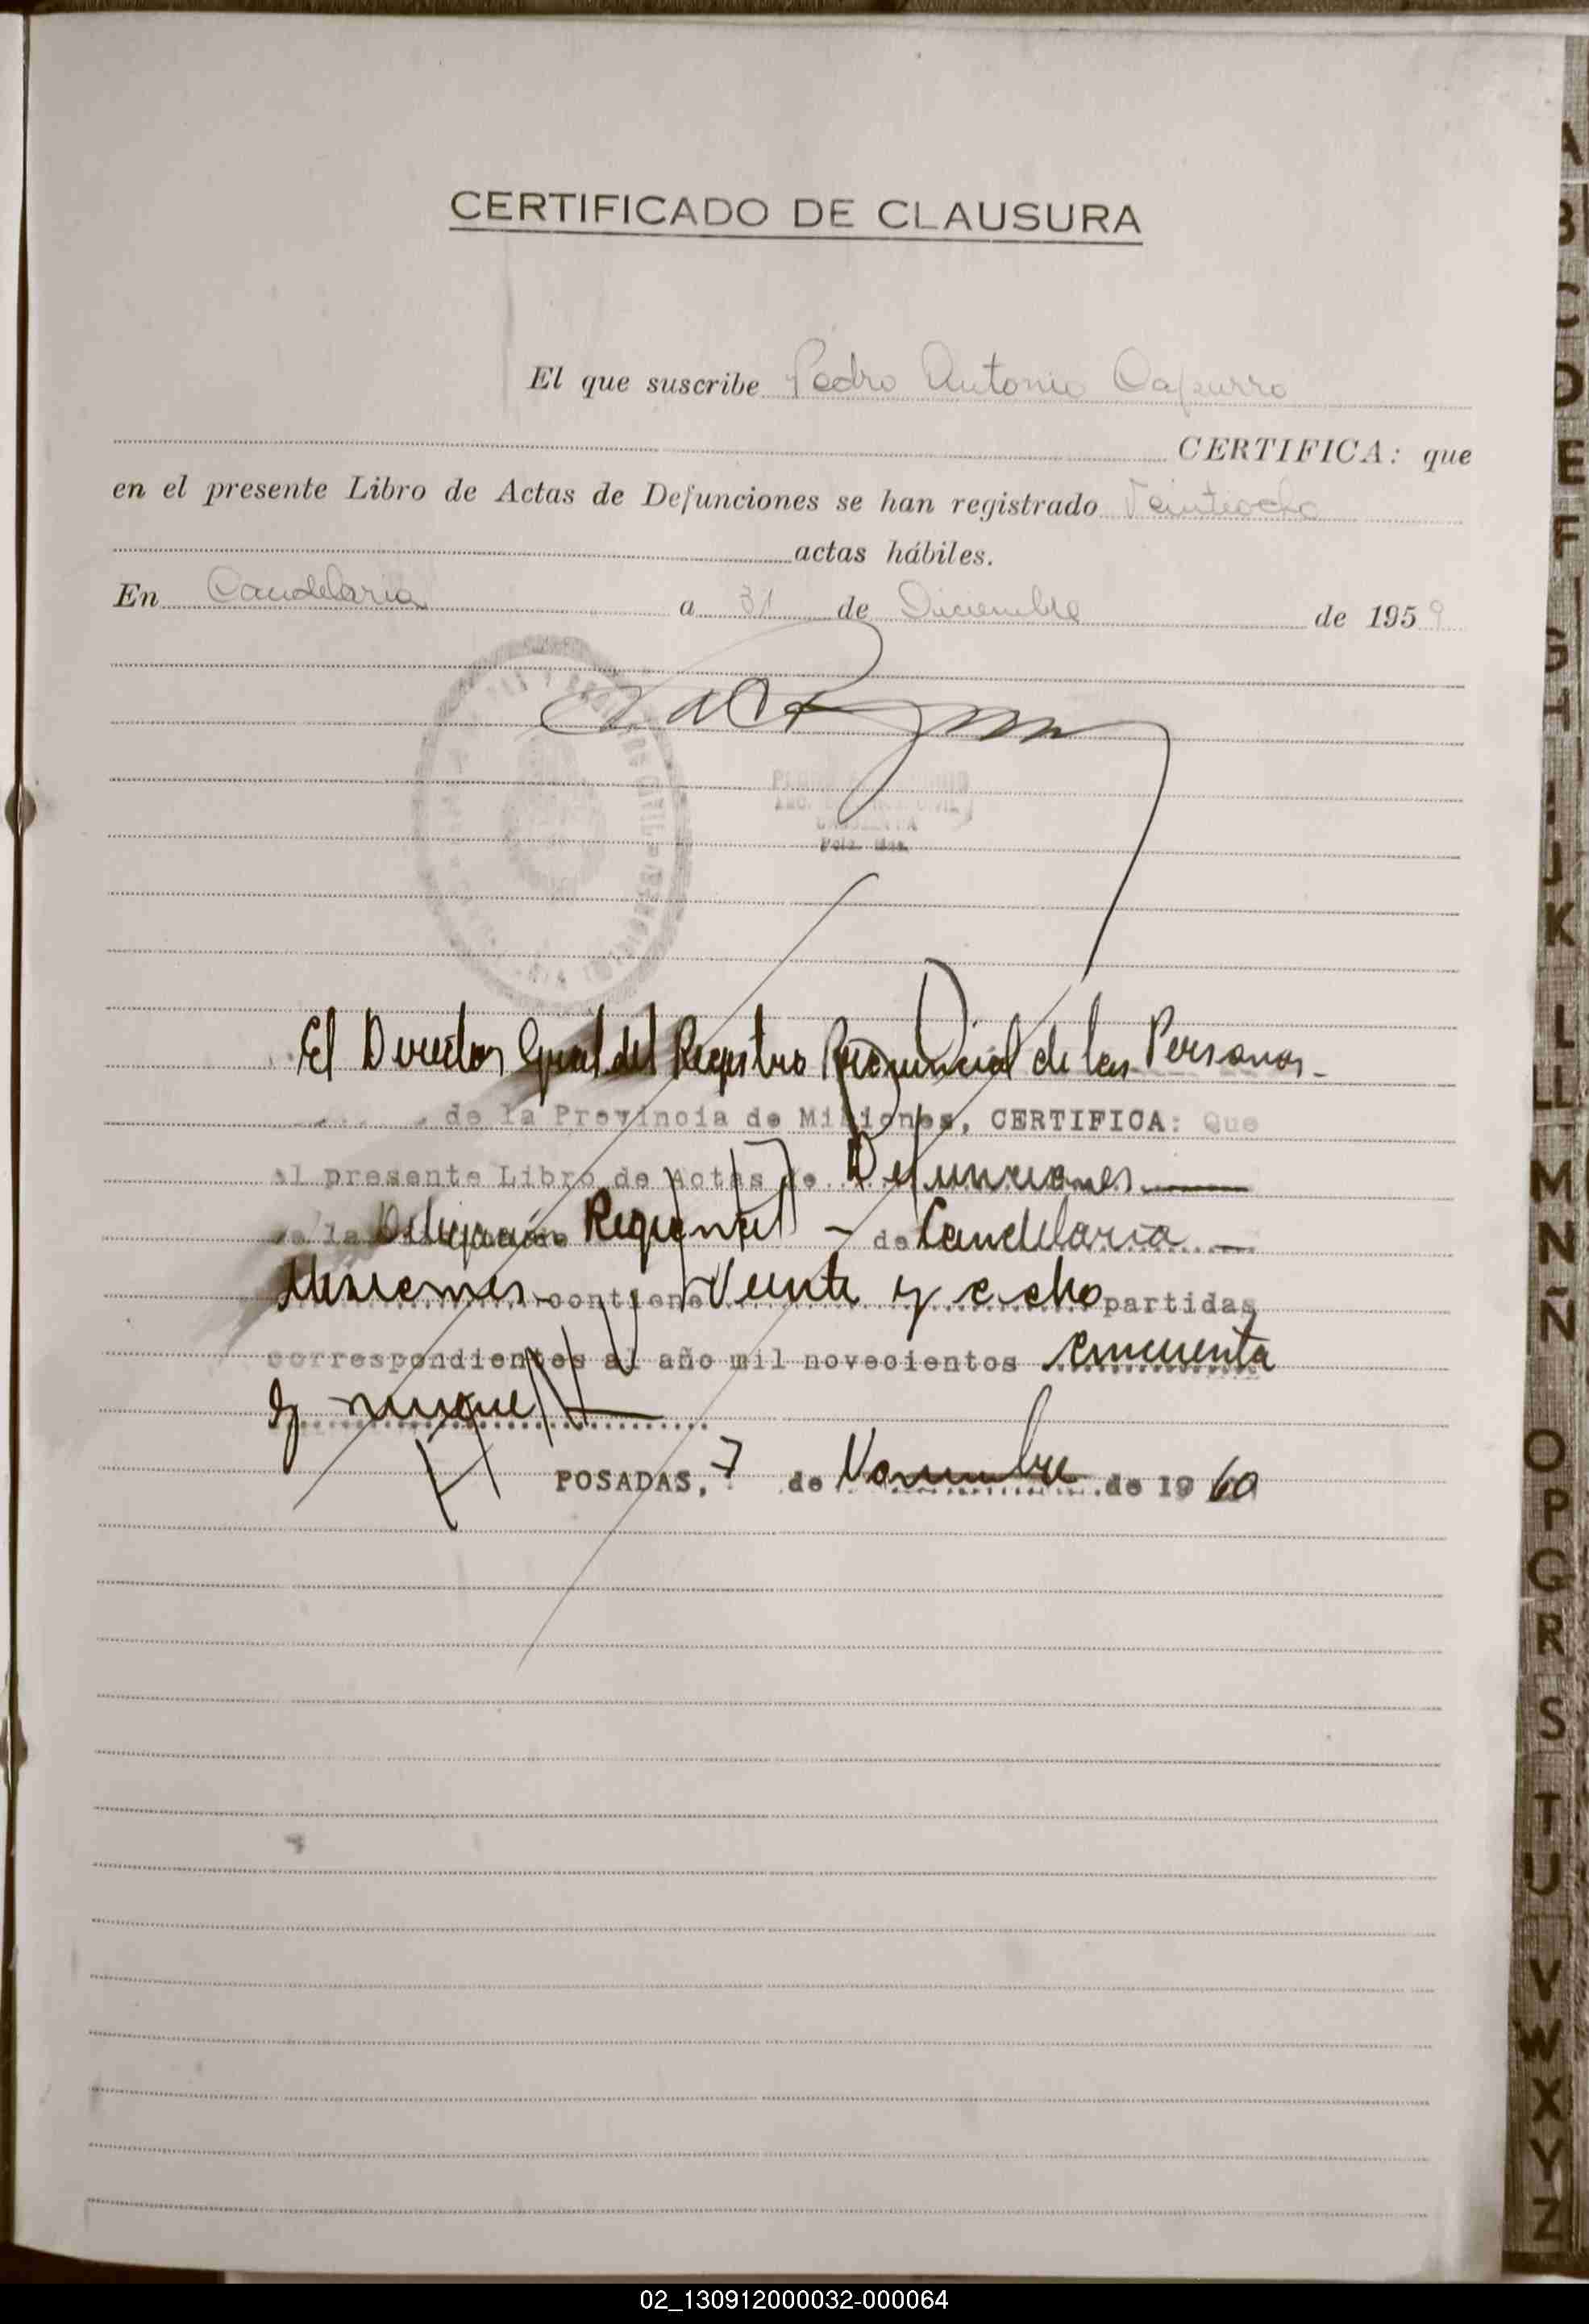 CERTIFICADO DE CLAUSURA
El que suscribe Pedro Antonio Capurro
CERTIFICA: que
en el presente Libro de Actas de Defunciones se han registrado Veinteocho
actas hábiles.
En Candelaria a 31 de Diciembre de 1959
El Director Gral del Registro Provincial de las Personas-
de la Provincia de Misiones, CERTIFICA: Que
el presente Libro de Actas de Defunciones
de la Delegación Regional - de Candelaria -
Misiones - contiene Veinte y ocho partidas
correspondientes al año mil novecientos cincuenta
y nueve
POSADAS, 7 de Noviembre de 1960
A
B
C
D
E
F
G
H
I
J
K
L
LL
M
N
Ñ
O
P
Q
R
S
T
U
V
W
X
Y
Z
02_130912000032-000064